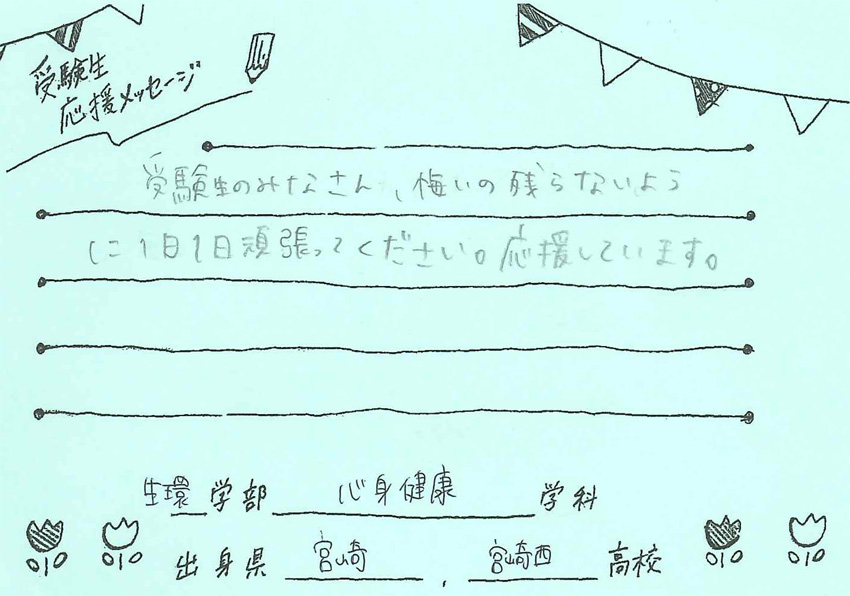 受験生
応援メッセージ
受験生のみなさん、悔いの残らないよう
に1日1日頑張ってください。応援しています。
生環学部 心身健康 学科
出身県 宮崎 , 宮崎西 高校